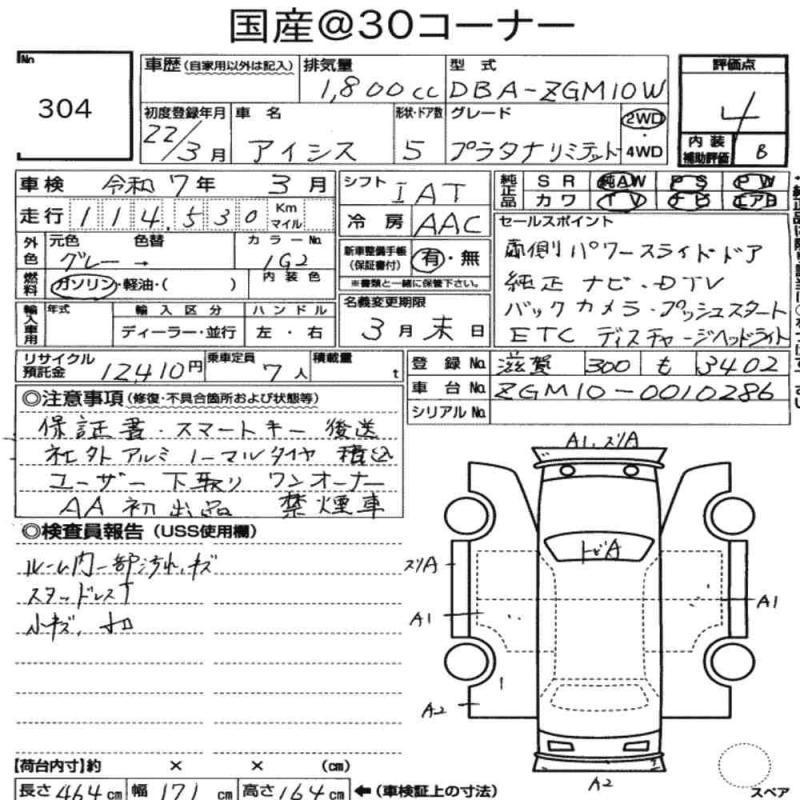 国産@30コーナー
No 304
車歴 (自家用以外は記入) 排気量 1,800cc 型式 DBA-ZGM10W
評価点 4
内装補助評価 B
初度登録年月 22/3月 車名 アイシス 形状・ドア数 5 グレード プラタナリミテッド 2WD・4WD
車検 令和7年3月 シフト IAT 純正品 SR 純AW PS PW
カワ TV ナビ エアB
走行 114,530 Km マイル 冷房 AAC
セールスポイント
外色 元色 グレー 色替 → カラーNo. 1G2 新車整備手帳(保証書付) 有・無
※書類と一緒に保管下さい。
両側パワースライドドア
燃料 ガソリン・軽油・( ) 内装色
純正ナビ・DTV
輸入車用 年式 輸入区分 ハンドル 名義変更期限
ディーラー・並行 左・右 3月末日
バックカメラ・プッシュスタート
ETC ディスチャージヘッドライト
リサイクル預託金 12,410円 乗車定員 7人 積載量 t
登録No. 滋賀 300 も 3402
車台No. ZGM10-0010286
シリアルNo.
◎注意事項(修復・不具合箇所および状態等)
保証書・スマートキー後送
社外アルミノーマルタイヤ積込
ユーザー下取り ワンオーナー
AA初出品 禁煙車
◎検査員報告(USS使用欄)
ルーム内一部汚れ、キズ
スタッドレス
小キズ、
A1、ズリA
トビA
ズリA
A1
A1
A2
A2
【荷台内寸】約 × × (cm)
長さ464cm 幅171cm 高さ164cm ←(車検証上の寸法)
スペア